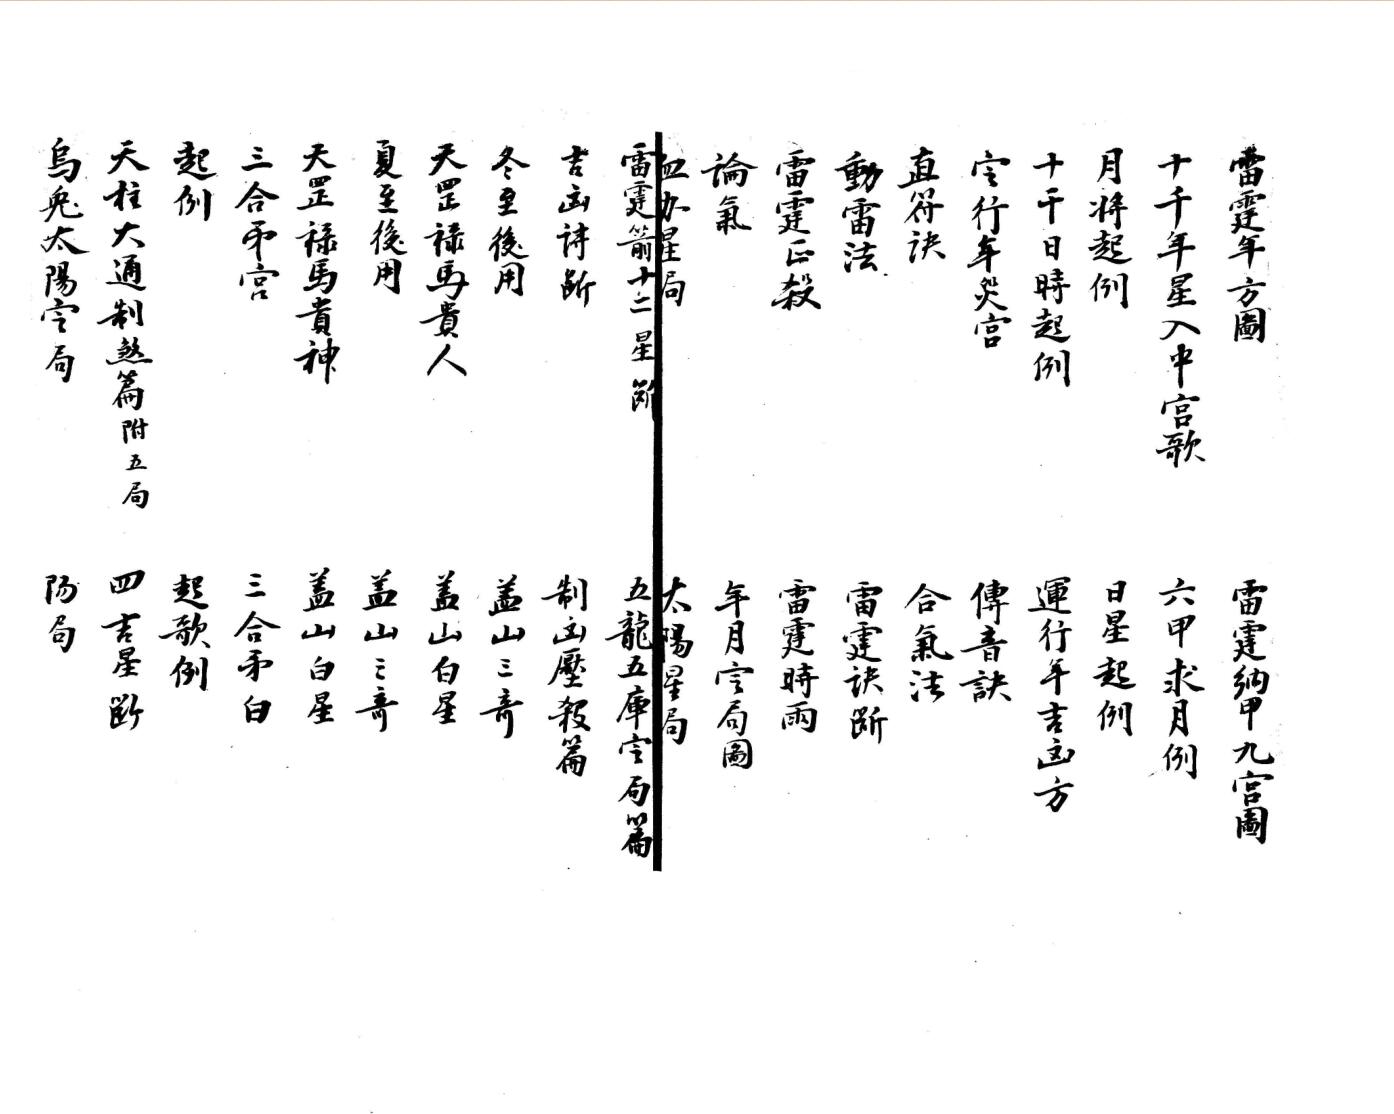 雷霆年方圖　雷霆納甲九宮圖
十千年星入中宮歌　六甲求月例
月將起例　日星起例
十干日時起例　運行年吉凶方
定行年災宮　傳音訣
直符訣　合氣法
動雷法　雷霆訣斷
雷霆正殺　雷霆時雨
論氣　年月定局圖
星局　太陽星局
雷霆箭十二星斷　五龍五庫定局篇
吉凶詩斷　制凶壓殺篇
冬至後用　盖山三奇
天罡祿馬貴人　盖山白星
夏至後用　盖山三奇
天罡祿馬貴神　盖山白星
三合吊宮　三合吊白
起例　起歌例
天柱大通制煞篇附五局　四吉星斷
烏兔太陽定局　阳局